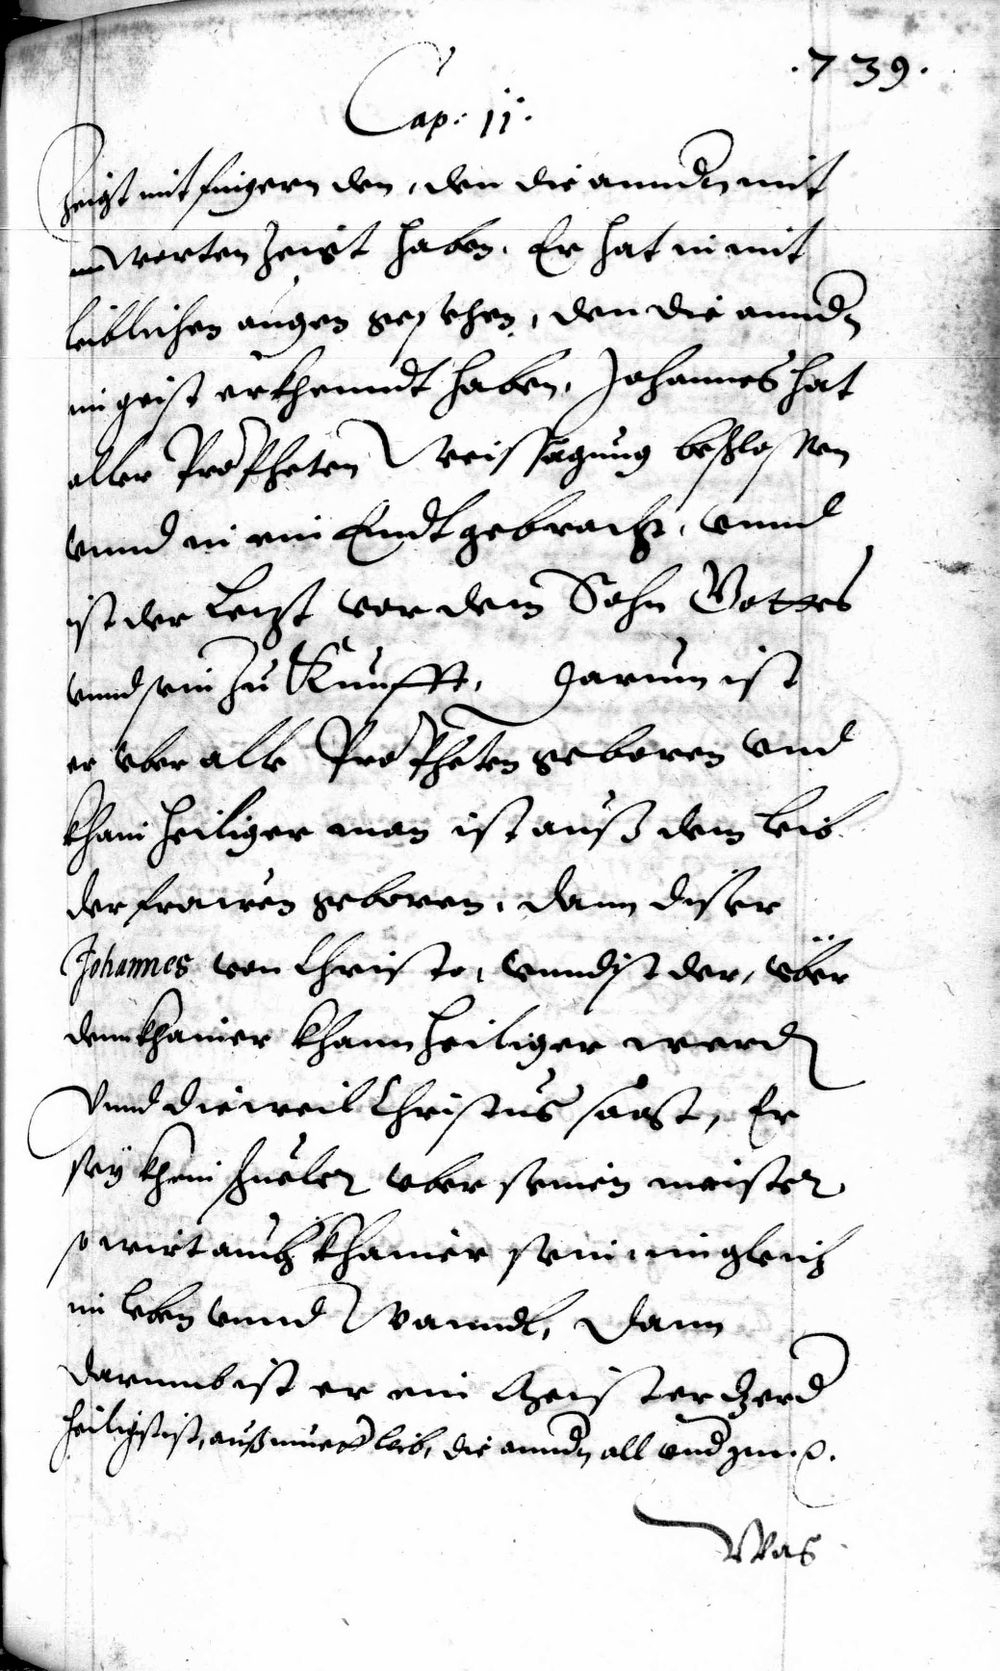 .739.
Cap: 11:
Zeigt mit fingern den, den die anndern mit
worten zeigt haben. Er hat in mit
leiblichen augen gesehen, den die anndern
im geist erkhenndt haben. Johannes hat
aller Propheten Weissagung beschlossen
vnnd in ein Endt gebracht, vnnd
ist der Letzt vor dem Sohn Gottes
vnnd sein zu Kunfft, Darum ist
er vber alle Propheten geboren vnd
khain heiliger man ist auß dem leib
der frawen geboren, dann diser
Johannes von Christo, vnnd ist der, vber
dem khainer khann heiliger werden
Vnnd dieweil Christus sagt, Er
seÿ khein schueler vber seinen meister
so wirt auch khainer sein im gleich
im leben vnnd Wanndl, Dann
darumb ist er ein
heiligst ist, auß mueter leib, die anndern all vnd
Was